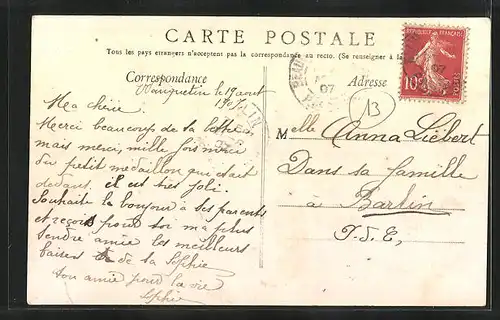 CARTE POSTALE
Tous les pays étrangers n'acceptent pas la correspondance au recto. (Se renseigner à la
Correspondance
Adresse
REPUBLIQUE FRANÇAISE
10c
POSTES
07
13
le 19 aout
1907
Ma chérie
Merci beaucoup de ta lettre,
mais merci, mille fois merci
du petit medaillon qui était
dedans. il est très joli.
Souhaite le bonjour à tes parents
et reçois pour toi ma plus
tendre amie les meilleurs
baisers de ta Sophie
ton amie pour la vie
Sophie
Melle Anna Liébert
Dans sa famille
à Barlin
P. d. C.